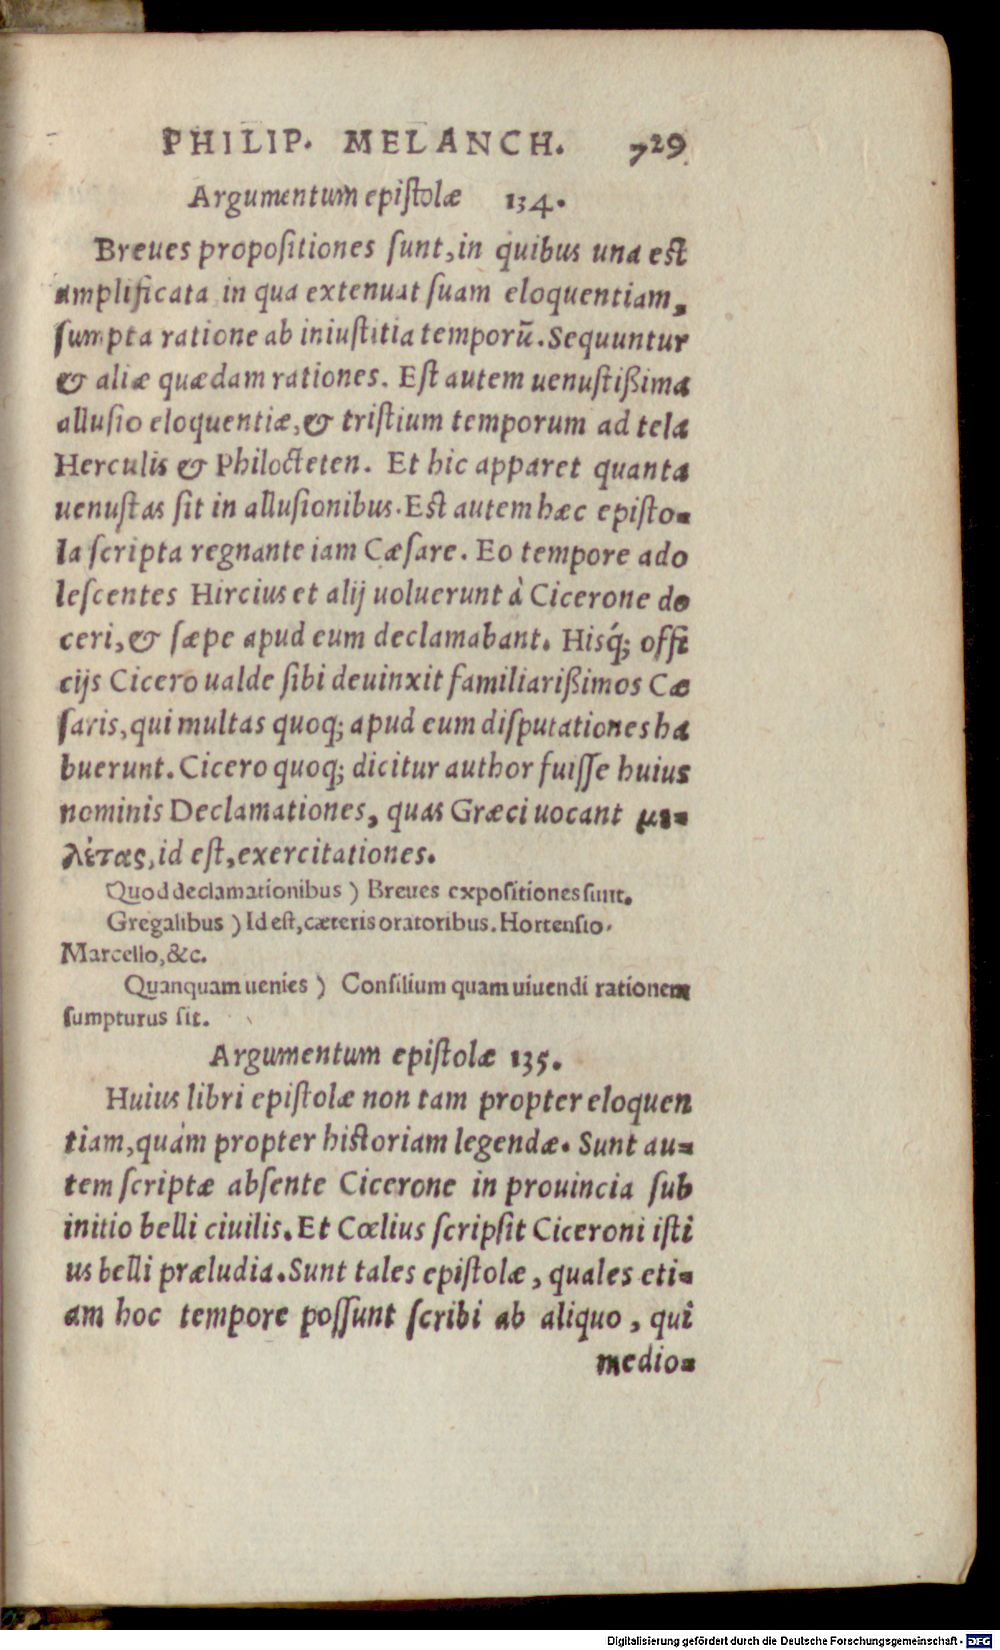 PHILIP. MELANCH. 729
Argumentum epistolæ 134.
Breues propositiones sunt, in quibus una est
amplificata in qua extenuat suam eloquentiam,
sumpta ratione ab iniustitia temporũ. Sequuntur
& aliæ quædam rationes. Est autem uenustißima
allusio eloquentiæ, & tristium temporum ad tela
Herculis & Philocteten. Et hic apparet quanta
uenustas sit in allusionibus. Est autem hæc episto-
la scripta regnante iam Cæsare. Eo tempore ado
lescentes Hircius et alij uoluerunt à Cicerone do
ceri, & sæpe apud eum declamabant. Hisq́; offi
cijs Cicero ualde sibi deuinxit familiarißimos Cæ
saris, qui multas quoq; apud eum disputationes ha
buerunt. Cicero quoq; dicitur author fuisse huius
nominis Declamationes, quas Græci uocant με-
λέτας, id est, exercitationes.
Quod declamationibus ) Breues expositiones sunt.
Gregalibus ) Id est, cæteris oratoribus. Hortensio.
Marcello, &c.
Quanquam uenies ) Consilium quam uiuendi rationem
sumpturus sit.
Argumentum epistolæ 135.
Huius libri epistolæ non tam propter eloquen
tiam, quàm propter historiam legendæ. Sunt au-
tem scriptæ absente Cicerone in prouincia sub
initio belli ciuilis. Et Cœlius scripsit Ciceroni isti
us belli præludia. Sunt tales epistolæ, quales eti-
am hoc tempore possunt scribi ab aliquo, qui
medio-
Digitalisierung gefördert durch die Deutsche Forschungsgemeinschaft - DFG